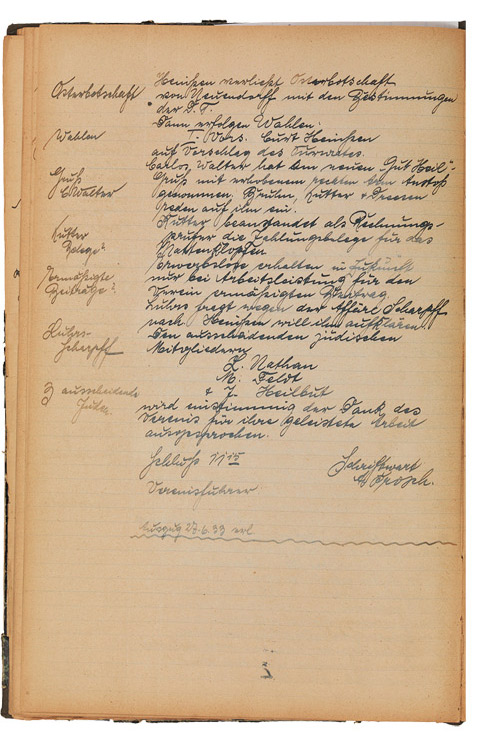 Heinsen verliest Osterbotschaft
Osterbotschaft
von Neuendorff mit den Bestimmungen
der D.T.
Dann erfolgen Wahlen.
Wahlen
I. Vors. Curt Heinsen
auf Vorschlag des Turnrates.
Carlos Walter hat am neuen "Gut Heil"-
Gruß
C Walter
Gruß mit erhobenem rechten Arm Anstoß
genommen. Brüln, Kutter &
reden auf ihn ein.
Kutter
Belege?
Kutter beanstandet als Rechnungs-
prüfer die Zahlungsbelege für das
Mattenklopfen.
Ermäßigte
Beiträge?
Erwerbslose erhalten in Zukunft
nur bei Arbeitsleistung für den
Verein ermäßigten Beitrag.
Lührs-
Scharpff
Lührs fragt wegen der Affäre Scharpff
nach. Heinsen will ihn aufklären.
Den ausscheidenden jüdischen
Mitgliedern
L. Nathan
M. Feldt
& J. Heilbut
3 ausscheidende
Juden.
wird einstimmig der Dank des
Vereins für ihre geleistete Arbeit
ausgesprochen.
Schluss 11 15
Schriftwart
Vereinsführer
Auszug 27.6.39 erl.